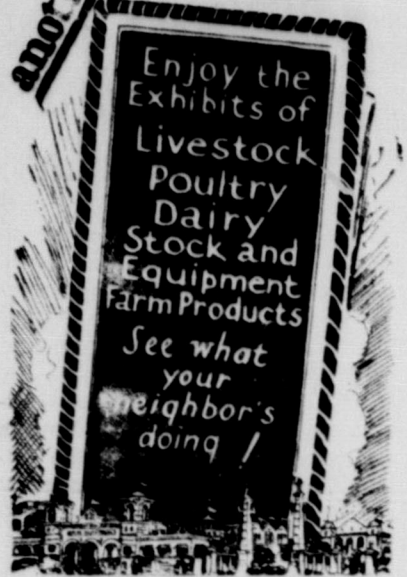 Enjoy the
Exhibits of
Livestock
Poultry
Dairy
Stock and
Equipment
Farm Products
See what
your
neighbor's
doing!